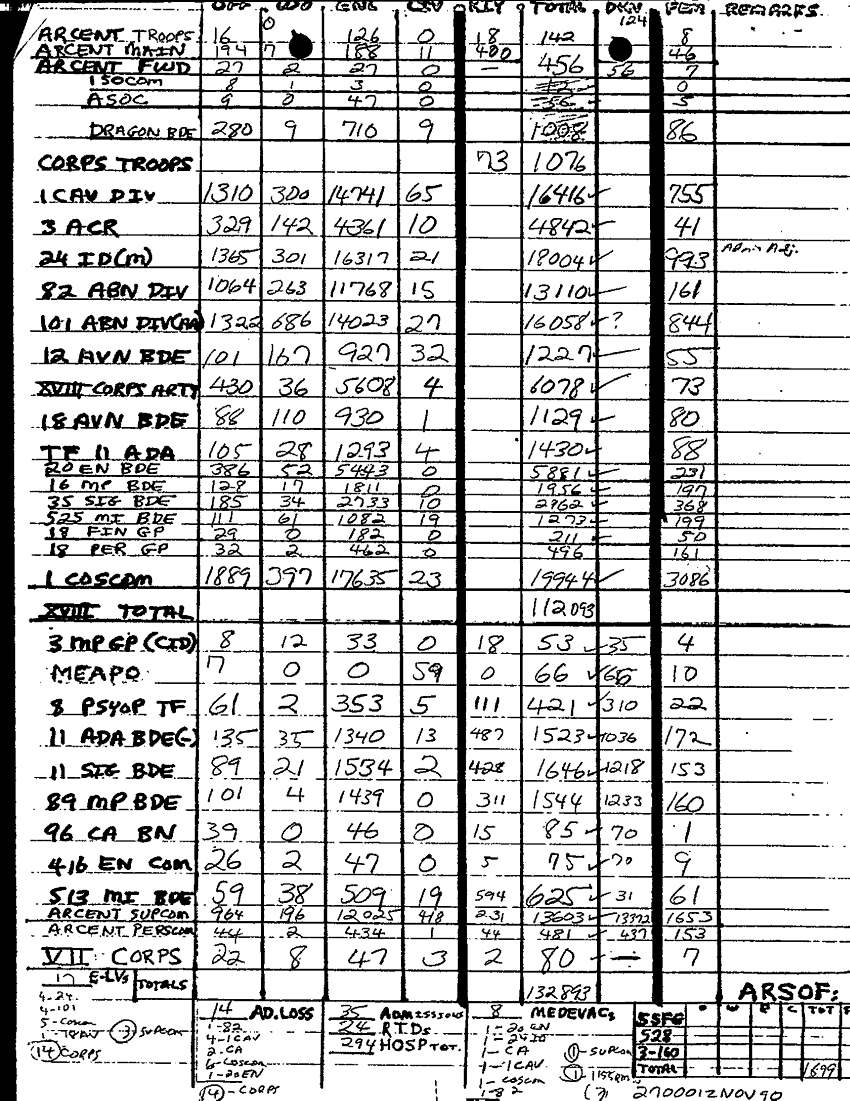 OFF WO ENL CIV RIY TOTAL DKN FEM REMARKS
0 124
ARCENT TROOPS 16 126 0 18 142 8
ARCENT MAIN 194 7 188 11 400 46
ARCENT FWD 27 2 27 0 — 456 56 7
ISOCOM 8 1 3 0 0
ASOC 9 0 47 0 56 5
DRAGON BDE 280 9 710 9 1008 86
CORPS TROOPS 73 1076
1 CAV DIV 1310 300 14741 65 16416 ✓ 755
3 ACR 329 142 4361 10 4842 ✓ 41
24 ID(M) 1365 301 16317 21 18004 ✓ 993 Admin Adj.
82 ABN DIV 1064 263 11768 15 13110 ✓ 161
101 ABN DIV(AA) 1322 686 14023 27 16058 ✓ ? 844
12 AVN BDE 101 167 927 32 1227 ✓ 55
XVIII CORPS ARTY 430 36 5608 4 6078 ✓ 73
18 AVN BDE 88 110 930 1 1129 ✓ 80
TF 11 ADA 105 28 1293 4 1430 ✓ 88
20 EN BDE 386 52 5443 0 5881 ✓ 231
16 MP BDE 128 17 1811 0 1956 ✓ 197
35 SIG BDE 185 34 2733 10 2962 ✓ 368
525 MI BDE 111 61 1082 19 1273 ✓ 199
18 FIN GP 29 0 182 0 211 ✓ 50
18 PER GP 32 2 462 0 496 161
1 COSCOM 1889 397 17635 23 19944 ✓ 3086
XVIII TOTAL 112093
3 MP GP (CID) 8 12 33 0 18 53 ✓ 35 4
MEAPO 7 0 0 59 0 66 ✓ 66 10
8 PSYOP TF 61 2 353 5 111 421 ✓ 310 22
11 ADA BDE(-) 135 35 1340 13 487 1523 ✓ 1036 172
11 SIG BDE 89 21 1534 2 428 1646 ✓ 1218 153
89 MP BDE 101 4 1439 0 311 1544 1233 160
96 CA BN 39 0 46 0 15 85 ✓ 70 1
416 EN COM 26 2 47 0 5 75 ✓ 70 9
513 MI BDE 59 38 509 19 594 625 ✓ 31 61
ARCENT SUPCOM 964 196 12025 418 231 13603 ✓ 13372 1653
ARCENT PERSCOM 44 2 434 1 44 481 ✓ 437 153
VII CORPS 22 8 47 3 2 80 — 7
17 E-LVs TOTALS 132893
4-24
4-101
5-Coscom
3 SUPCOM
14 CORPS
14 AD.LOSS
1-82
4-1CAV
2-CA
6-Coscom
1-20EN
14-CORPS
35 ADMISSIONS
24 RTDs
294 HOSP TOT.
8 MEDEVACs
1-20 EN
1-24ID
1-CA
1-1CAV
1-COSCM
1-82
0-SUPCOM
ARSOF:
O W E C TOT F
5SFG
528
3-160
TOTAL 1699
270001ZNOV90